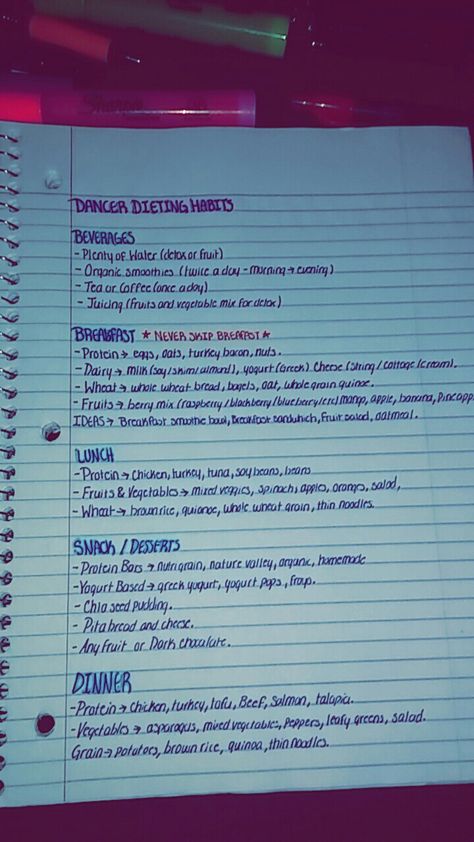 Sharpie
DANCER DIETING HABITS
BEVERAGES
- Plenty of Water (detox or fruit)
- Organic smoothies (twice a day - morning → evening)
- Tea or Coffee (once a day)
- Juicing (fruits and vegetable mix for detox)
BREAKFAST ★ NEVER SKIP BREAKFAST ★
- Protein → eggs, oats, turkey bacon, nuts.
- Dairy → milk (soy/skim/almond), yogurt (Greek) cheese (string/cottage/cream).
- Wheat → whole wheat bread, bagels, oat, whole grain quinoe.
- Fruits → berry mix (raspberry/blackberry/blueberry/etc) mango, apple, banana, Pineapple
IDEAS → Breakfast smoothie bowl, Breakfast sandwhich, Fruit salad, oatmeal.
LUNCH
- Protein → Chicken, turkey, tuna, soybeans, beans
- Fruits & Vegetables → mixed veggies, spinach, apples, oranges, salad,
- Wheat → brown rice, quionoe, whole wheat grain, thin noodles.
SNACK / DESSERTS
- Protein Bars → nutrigrain, nature valley, organic, homemade
- Yogurt Based → greek yogurt, yogurt pops, froyo.
- Chia seed pudding.
- Pita bread and cheese.
- Any fruit or Dark chocalate.
DINNER
- Protein → Chicken, turkey, tofu, Beef, salmon, talapia.
- Vegetables → asparagus, mixed vegetables, peppers, leafy greens, salad.
Grain → potatoes, brown rice, quinoa, thin noodles.